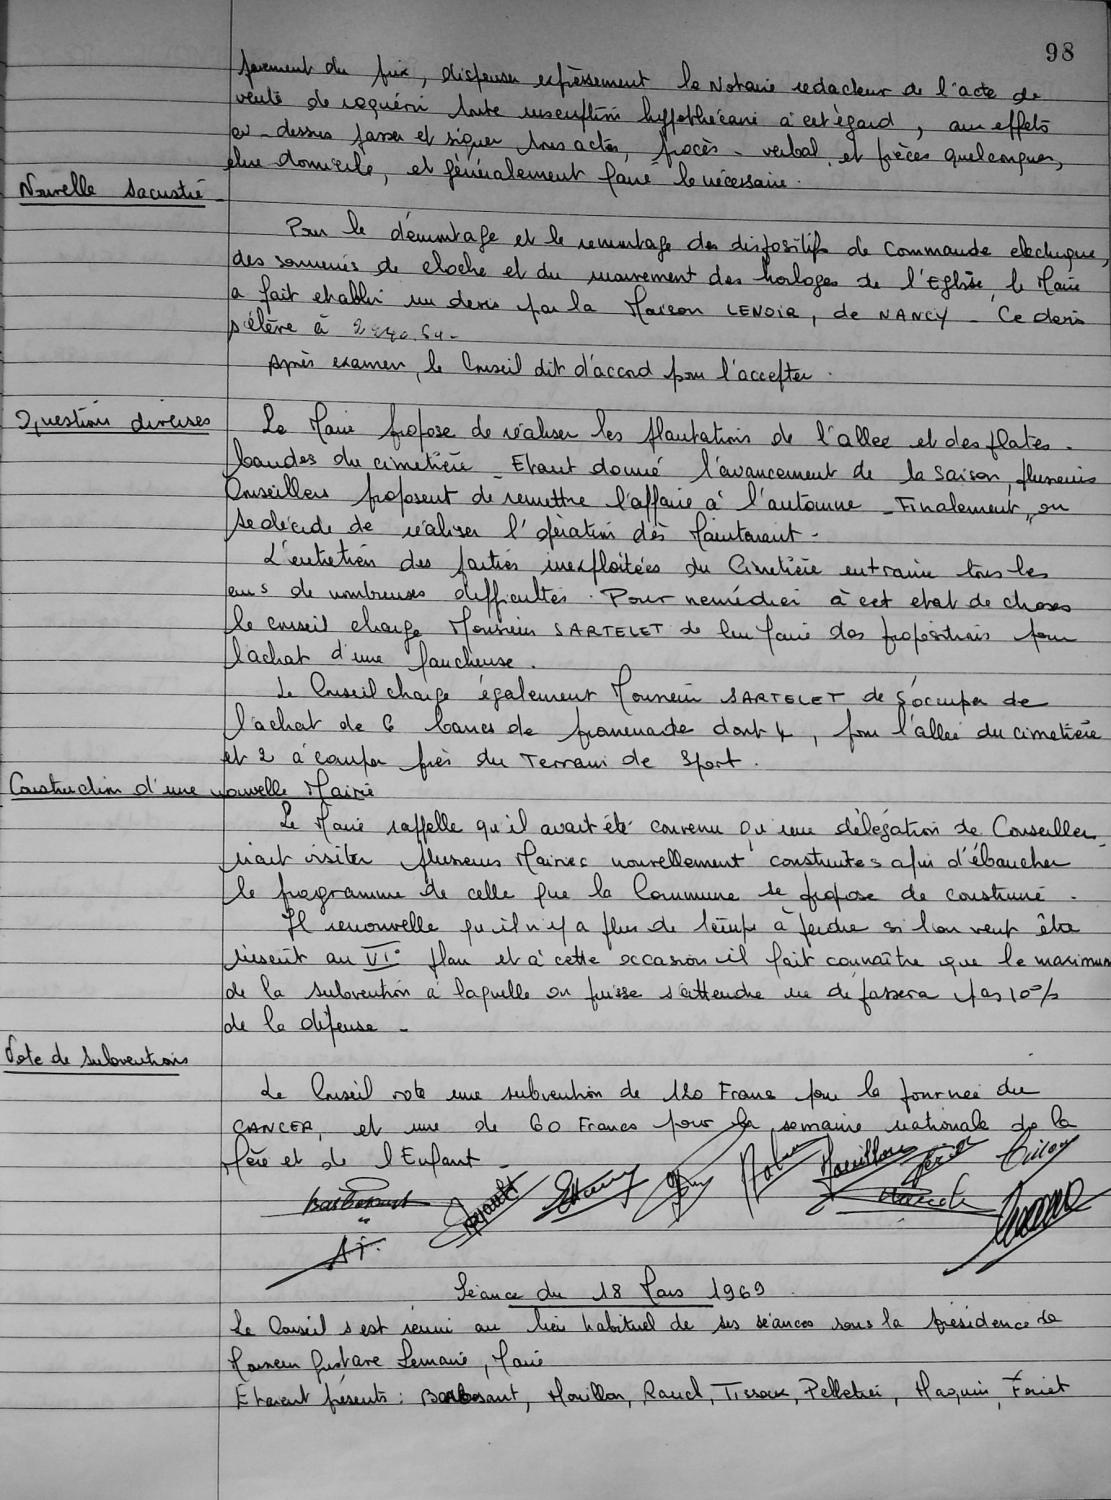 98
payement du prix, dispenser expressement le Notaire redacteur de l'acte de
vente de requérir toute inscription hypothécaire à cet égard, aux effets
ci-dessus passer et signer tous actes, procès-verbal, et pièces quelconques,
élire domicile, et généralement faire le nécessaire.
Nouvelle sacristie
Pour le démontage et le remontage des dispositifs de commande electrique,
des sonneries de cloche et du mouvement des horloges de l'Eglise, le Maire
a fait etablir un devis par la Maison LENOIR, de NANCY - Ce devis
s'élève à
Après examen, le Conseil dit d'accord pour l'accepter.
Questions diverses
Le Maire propose de réaliser les plantations de l'allee et des plates-
bandes du cimetière. Etant donné l'avancement de la saison, plusieurs
Conseillers proposent de remettre l'affaire à l'automne - Finalement, on
se décide de réaliser l'opération dès Maintenant -
L'entretien des parties inexploitées du Cimetière entraine tous les
ans de nombreuses difficultés. Pour remédier à cet etat de choses
le conseil charge Monsieur SARTELET de leur faire des propositions pour
l'achat d'une faucheuse.
Le Conseil charge également Monsieur SARTELET de s'occuper de
l'achat de 6 bancs de promenade dont 4, pour l'allée du cimetière
et 2 à camper près du Terrain de Sport.
Construction d'une nouvelle Mairie
Le Maire rappelle qu'il avait été convenu qu'une délégation de Conseillers
irait visiter plusieurs Mairies nouvellement construites afin d'ébaucher
le programme de celle que la Commune se propose de construire.
Il renouvelle qu'il n'y a plus de temps à perdre si l'on veut être
inscrit au VIe plan et à cette occasion il fait connaître que le maximum
de la subvention à laquelle on puisse s'attendre ne dépassera pas 10%
de la dépense -
Vote de subventions
Le Conseil vote une subvention de 120 Francs pour la journée du
CANCER, et une de 60 Francs pour la semaine nationale de la
Mère et de l'Enfant -
Séance du 18 Mars 1969
Le Conseil s'est réuni au lieu habituel de ses séances sous la présidence de
Monsieur Gustave Lemaire, Maire
Etaient présents : Barbosant, Mouillon, Raucl, Tissoux, Pelletier, Maquin, Foriet